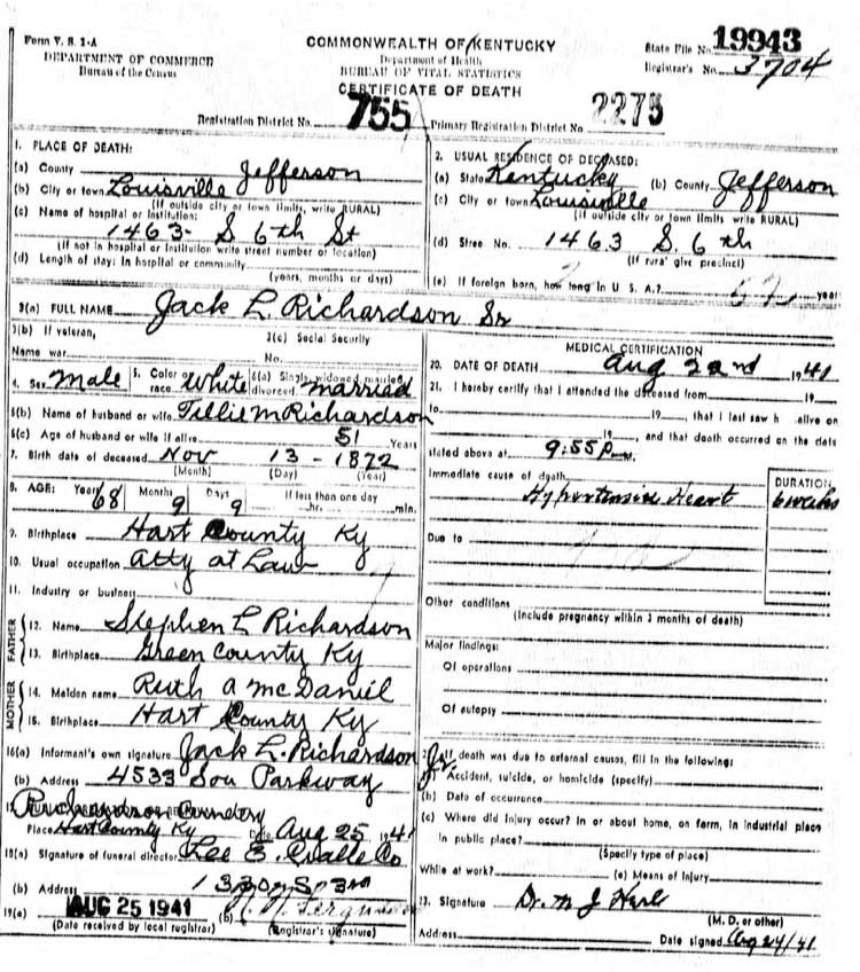 Form V. S. 1-A
DEPARTMENT OF COMMERCE
Bureau of the Census
COMMONWEALTH OF KENTUCKY
Department of Health
BUREAU OF VITAL STATISTICS
CERTIFICATE OF DEATH
State File No. 19943
Registrar's No. 3704
Registration District No. 755 Primary Registration District No. 2275
1. PLACE OF DEATH:
(a) County Jefferson
(b) City or town Louisville
(If outside city or town limits, write RURAL)
(c) Name of hospital or institution:
1463- S 6th St
(If not in hospital or institution write street number or location)
(d) Length of stay: In hospital or community
(years, months or days)
2. USUAL RESIDENCE OF DECEASED:
(a) State Kentucky (b) County Jefferson
(c) City or town Louisville
(If outside city or town limits write RURAL)
(d) Stree. No. 1463 S. 6th
(If rural give precinct)
(e) If foreign born, how long in U. S. A.? year
3(a) FULL NAME Jack L. Richardson Sr
3(b) If veteran,
Name war
3(c) Social Security
No.
4. Sex male 5. Color or race White 6(a) Single, widowed, married, divorced married
6(b) Name of husband or wife Tillie M Richardson
6(c) Age of husband or wife if alive 51 Years
7. Birth date of deceased Nov 13 - 1872
(Month) (Day) (Year)
8. AGE: Years 68 Months 9 Days 9 If less than one day
hr. min.
9. Birthplace Hart County Ky
10. Usual occupation Atty at Law
11. Industry or business
FATHER
12. Name Stephen L Richardson
13. Birthplace Green County Ky
MOTHER
14. Maiden name Ruth A McDaniel
15. Birthplace Hart County Ky
16(a) Informant's own signature Jack L. Richardson
(b) Address 4533 Sou Parkway
Richardson Cemetery
Place Hart County Ky Date Aug 25, 1941
18(a) Signature of funeral director Lee E. Co
(b) Address 1330 S 3rd
19(a) AUG 25 1941 (b)
(Date received by local registrar) (Registrar's signature)
MEDICAL CERTIFICATION
20. DATE OF DEATH Aug 22nd 1941
21. I hereby certify that I attended the deceased from 19
to 19, that I last saw h alive on
19, and that death occurred on the date
stated above at 9:55 P m.
Immediate cause of death
Hypertensive Heart
DURATION
6 weeks
Due to
Other conditions
(Include pregnancy within 3 months of death)
Major findings:
Of operations
Of autopsy
If death was due to external causes, fill in the following:
Accident, suicide, or homicide (specify)
(b) Date of occurrence
(c) Where did injury occur? In or about home, on farm, in industrial place
in public place?
(Specify type of place)
While at work? (e) Means of Injury
23. Signature Dr. M J
(M. D. or other)
Address Date signed Aug 24/41